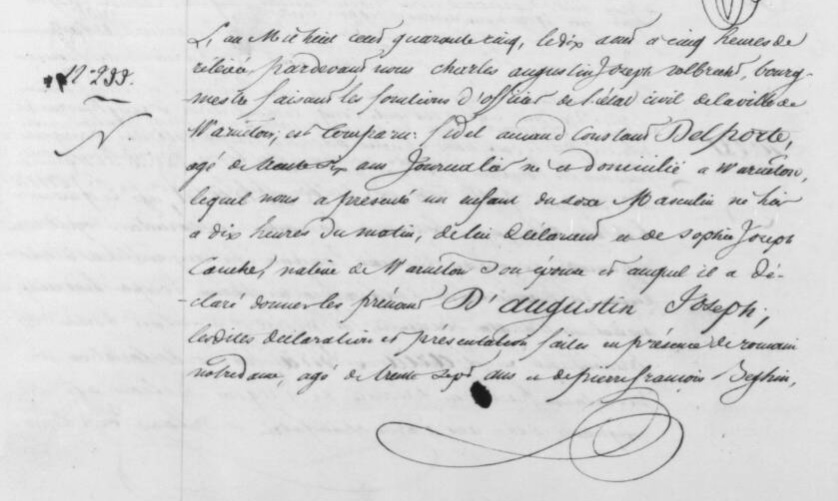 12-233.
N.
L'an Mil huit cent quarante cinq, le dix aout a cinq heures de
relevée, pardevant nous charles augustin Joseph valbrant, bourg-
mestre faisant les fonctions d'officier de l'état civil de la ville de
Warneton, est comparu: fidel amand Constant Delporte,
agé de trente six ans Journalier né et domicilié a Warneton,
lequel nous a présenté un enfant du sexe Masculin né hier
a dix heures du matin, de lui déclarant et de sophie Joseph
Cauche, native de Warneton son épouse et auquel il a dé-
-claré donner les prénoms D'augustin Joseph;
lesdites déclaration et présentation faites en présence de romain
notredame, agé de trente sept ans et de pierre françois Beghin,